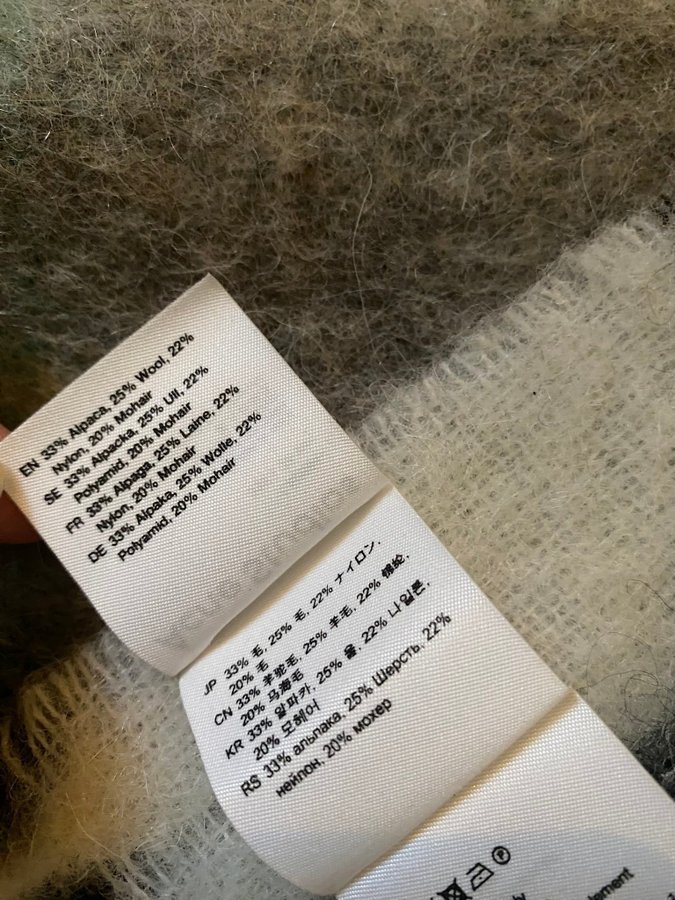 EN 33% Alpaca, 25% Wool, 22%
Nylon, 20% Mohair
SE 33% Alpacka, 25% Ull, 22%
Polyamid, 20% Mohair
FR 33% Alpaga, 25% Laine, 22%
Nylon, 20% Mohair
DE 33% Alpaka, 25% Wolle, 22%
Polyamid, 20% Mohair
JP 33% 毛, 25% 毛, 22% ナイロン,
20% 毛
CN 33% 羊驼毛, 25% 羊毛, 22% 锦纶,
20% 马海毛
KR 33% 알파카, 25% 울, 22% 나일론,
20% 모헤어
RS 33% альпака, 25% Шерсть, 22%
нейлон, 20% мохер